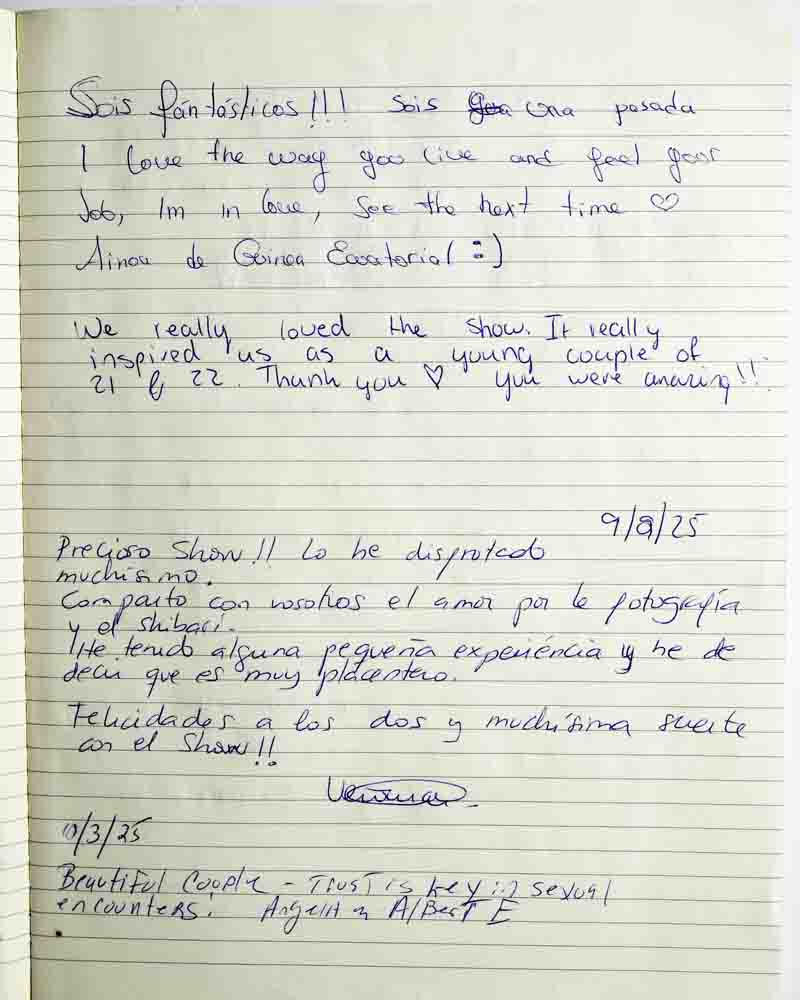 Sois fántásticos!!! Sois una pasada
I love the way you live and feel good
Job, Im in love, See the next time ♡
Ainoa de Guinea Ecuatorial :)
We really loved the show. It really
inspired us as a young couple of
21 & 22. Thank you ♡ you were amazing!!
9/8/25
Precioso Show!! Lo he disfrutado
muchísimo.
Comparto con vosotros el amor por la fotografía
y el shibari.
He tenido alguna pequeña experiencia y he de
decir que es muy placentero.
Felicidades a los dos y muchísima suerte
con el Show!!
/3/25
Beautiful Couple - Trust is key in sexual
encounters! Angela y Albert E